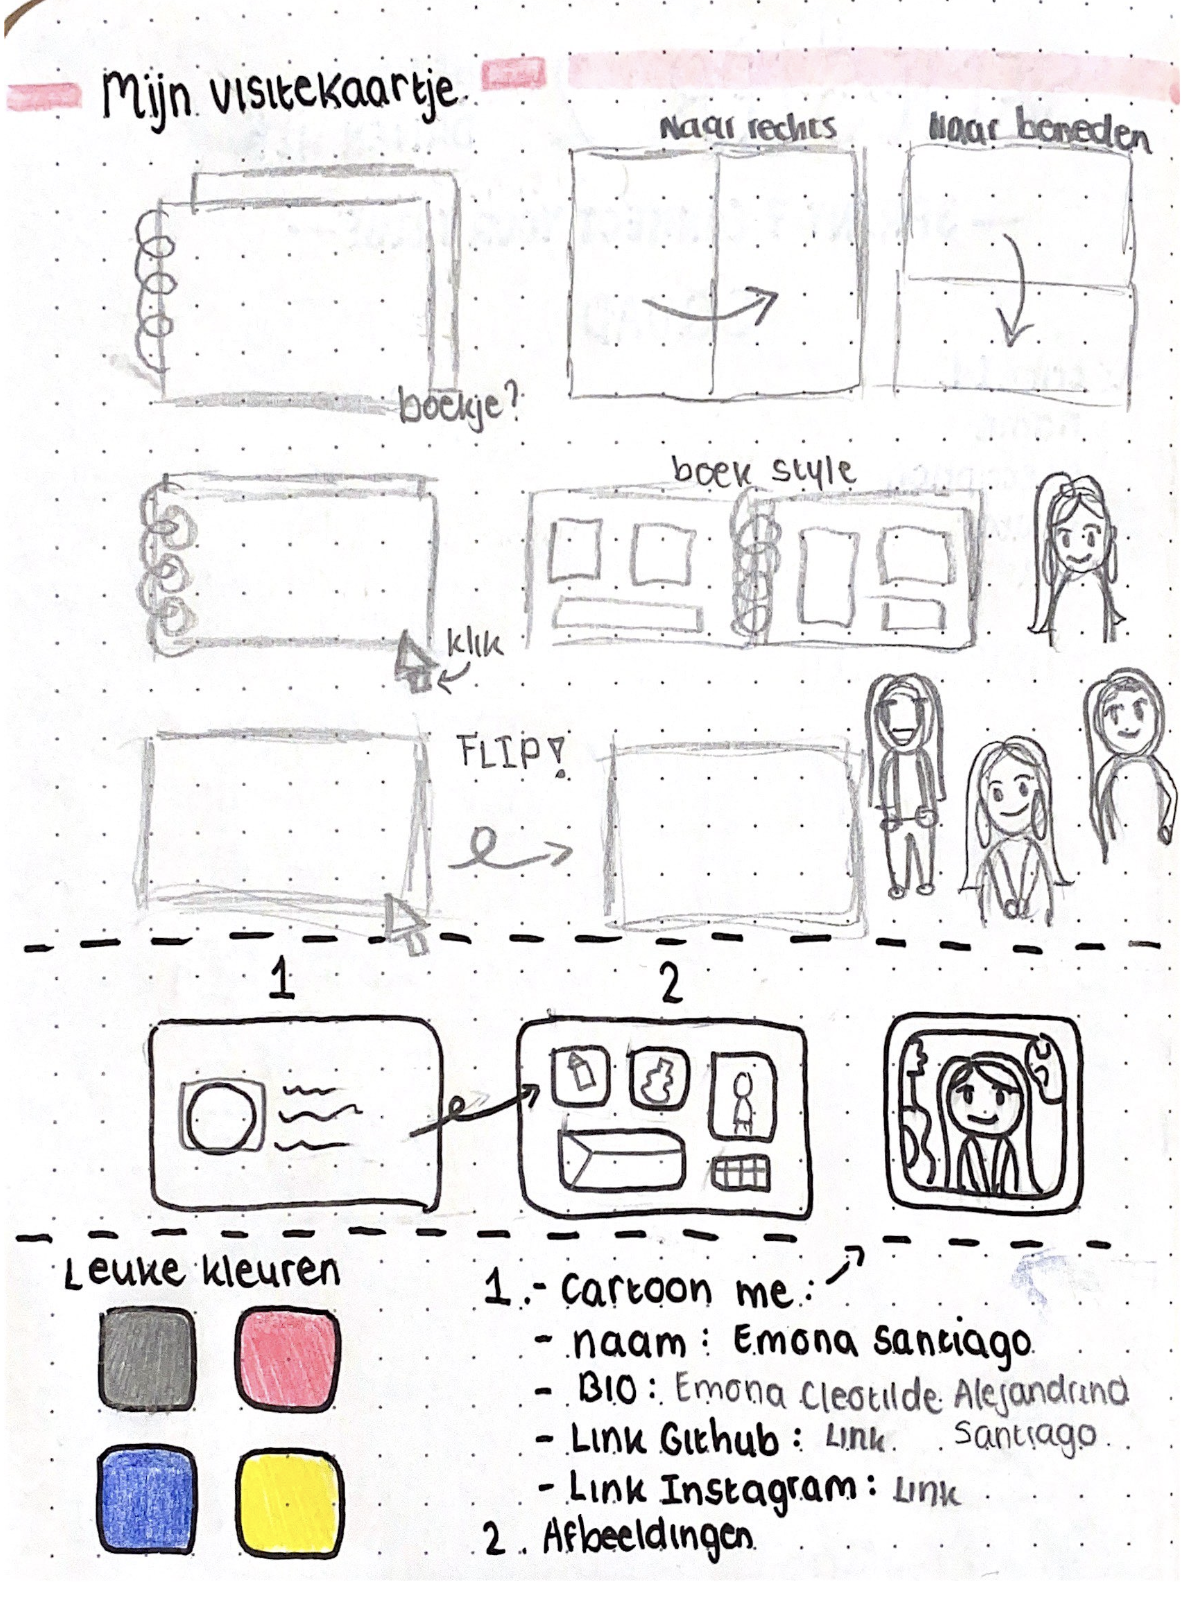 Mijn visitekaartje
Naar rechts
Naar beneden
boekje?
boek style
klik
FLIP!
1
2
Leuke kleuren
1.- Cartoon me:
- naam: Emona Santiago
- BIO: Emona Cleotilde Alejandrina
Santiago
- Link Github: Link
- Link Instagram: Link
2. Afbeeldingen